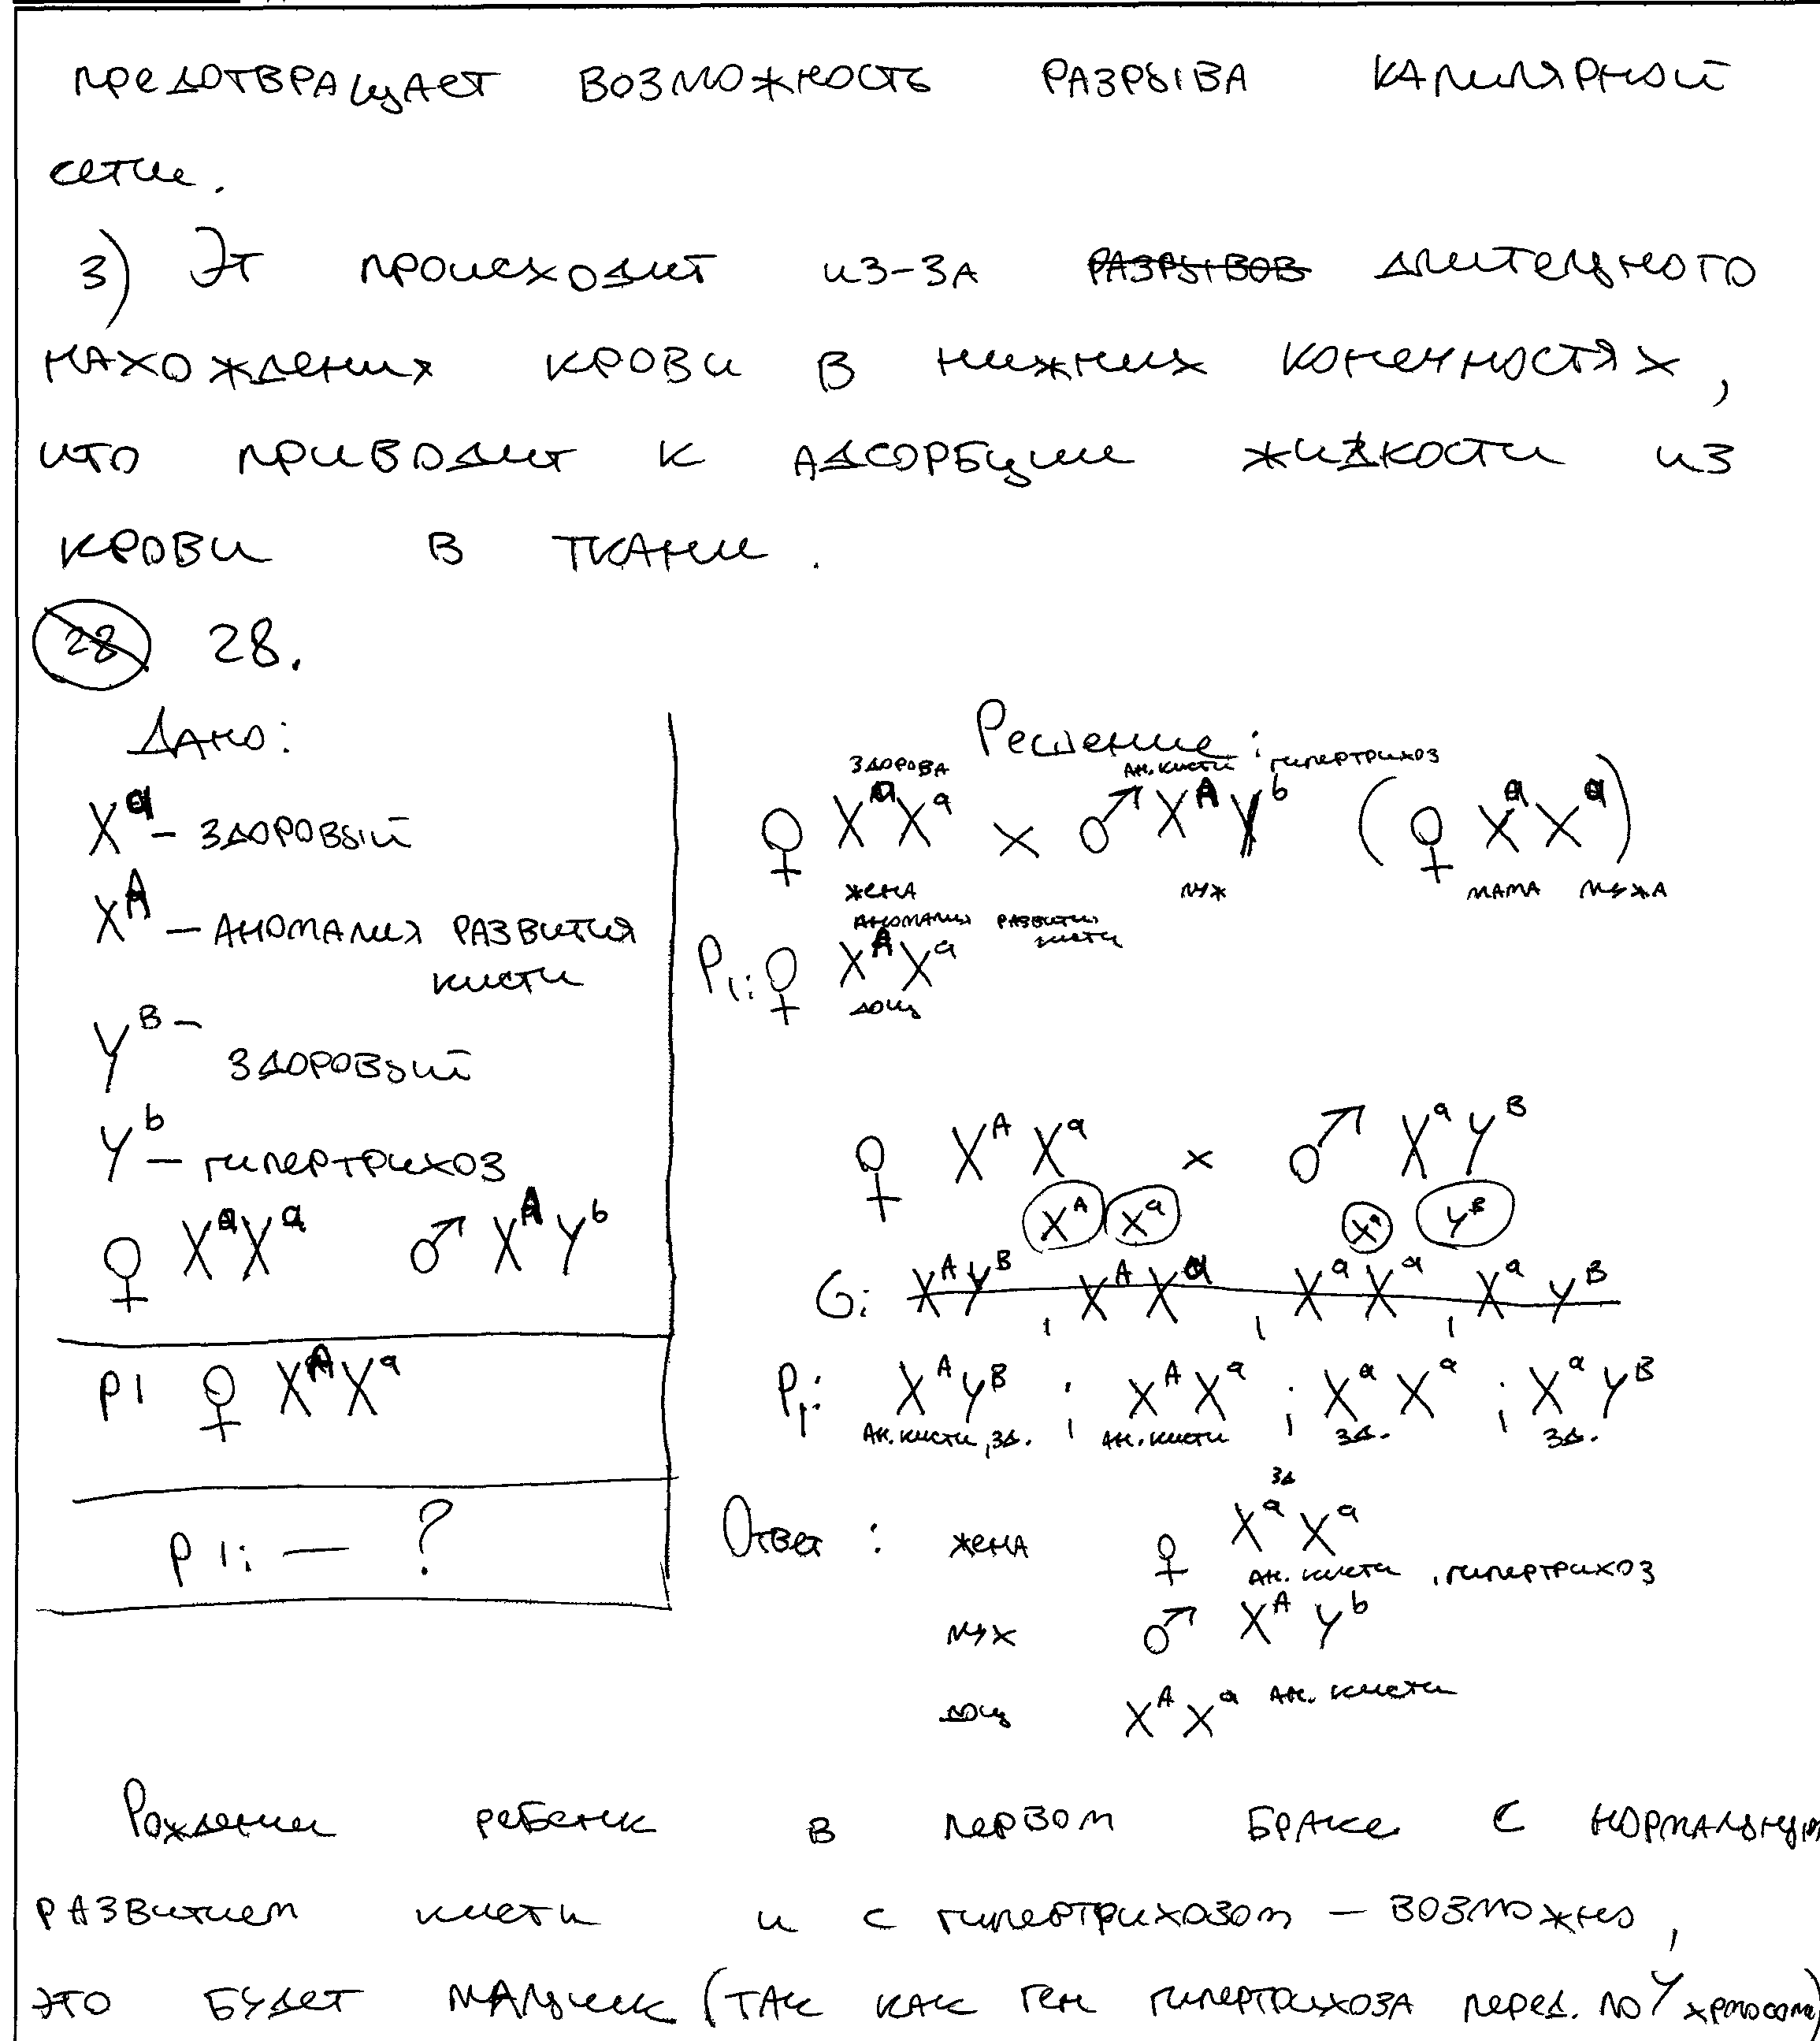 предотвращает возможность разрыва капилярной
сетии.
3) Эт происходит из-за разрывов длительного
нахождения крови в нижних конечностях,
что приводит к адсорбции жидкости из
крови в ткани.
28 28.
Дано:
X^a – здоровый
X^A – аномалия развития
кисти
Y^B – здоровый
Y^b – гипертрихоз
♀ X^a X^a ♂ X^A Y^b
P1 ♀ X^A X^a
P1: — ?
Решение:
здорова ан. кисти гипертрихоз
♀ X^a X^a × ♂ X^A Y^b (♀ X^a X^a)
жена муж мама мужа
аномалия развития
кисти
P1: ♀ X^A X^a
дочь
♀ X^A X^a × ♂ X^a Y^B
X^A X^a X^a Y^B
G: X^A Y^B, X^A X^a, X^a X^a, X^a Y^B
P1: X^A Y^B; X^A X^a; X^a X^a; X^a Y^B
ан. кисти, зд. ан. кисти зд. зд.
зд
Ответ: жена ♀ X^a X^a
ан. кисти, гипертрихоз
муж ♂ X^A Y^b
дочь X^A X^a ан. кисти
Рождении ребенк в первом браке с нормальным
развитием кисти и с гипертрихозом – возможно,
это будет мальчик (так как ген гипертрихоза перед. по Y хромосоме)